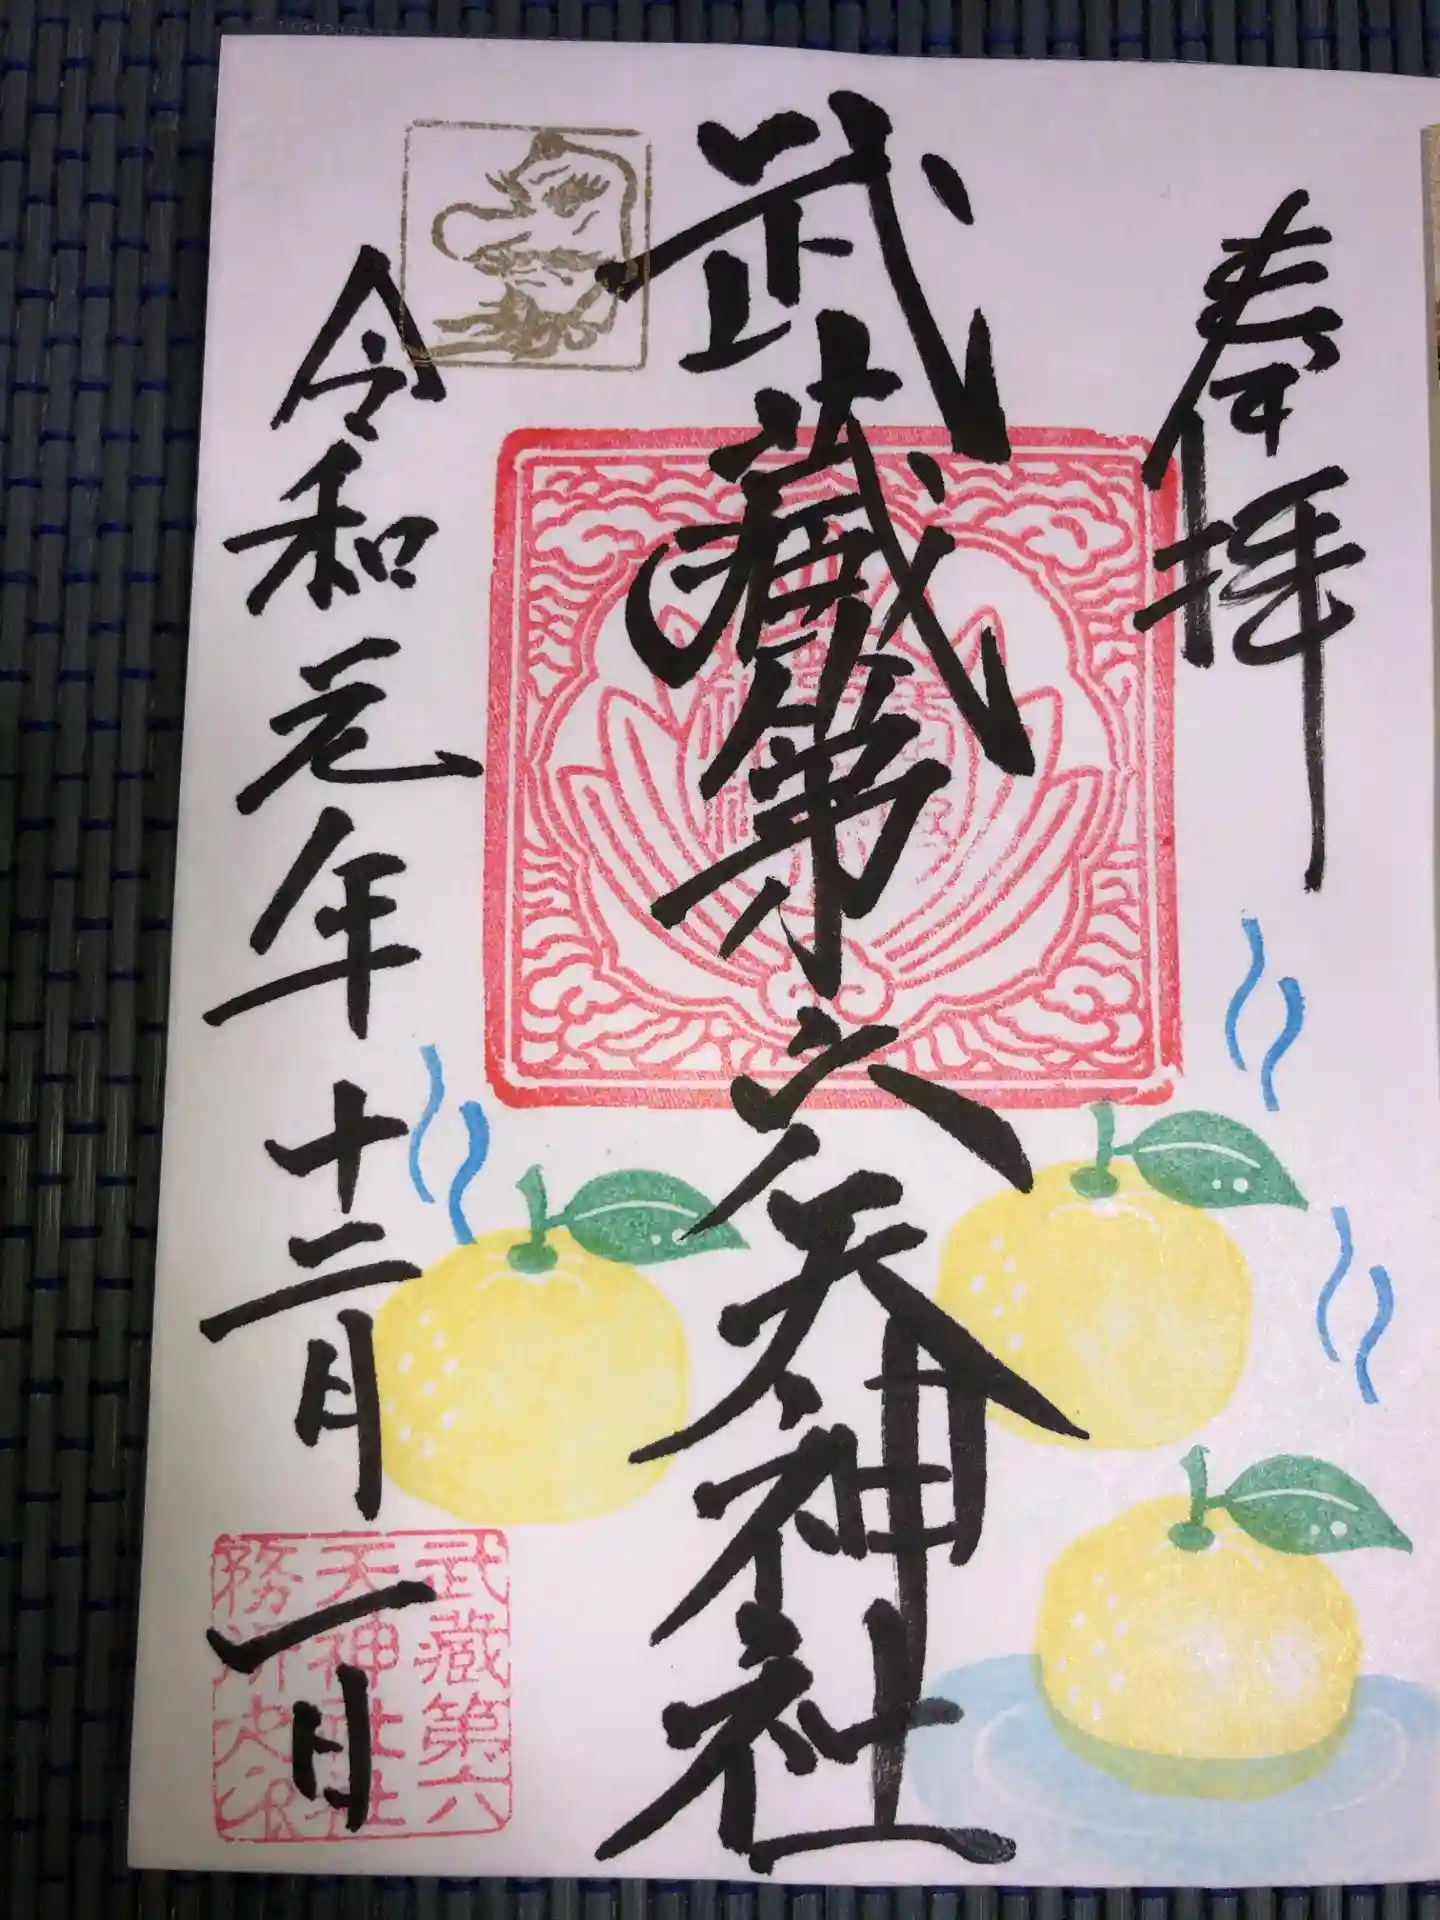 奉拝
武蔵第六天神社
令和元年十二月一日
武蔵第六
天神社社
務所之印